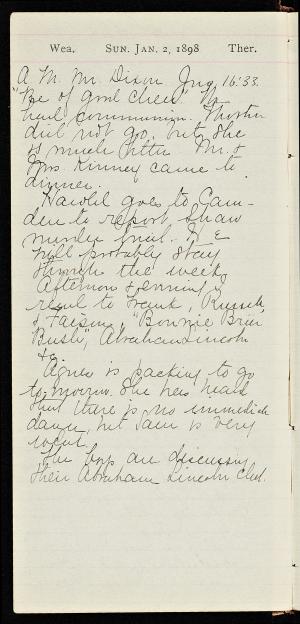 Wea. SUN. JAN. 2, 1898 Ther.
A.M. Mr. Dixon Jno. 16:33.
"Be of good cheer." We
had communion. Mother
did not go, but she
is much better. Mr. &
Mrs. Kinney came to
dinner.
Harold goes to Cam-
den to report Shaw
murder trial. H E
will probably stay
through the week.
Afternoon & evening
read to Frank,
& "Bonnie Brier
Bush", Abraham Lincoln
&c.
Agnes is packing to go
to-morrow. She has heard
that there is no immediate
danger, but Sam is very
The boys are discussing
their Abraham Lincoln Club.